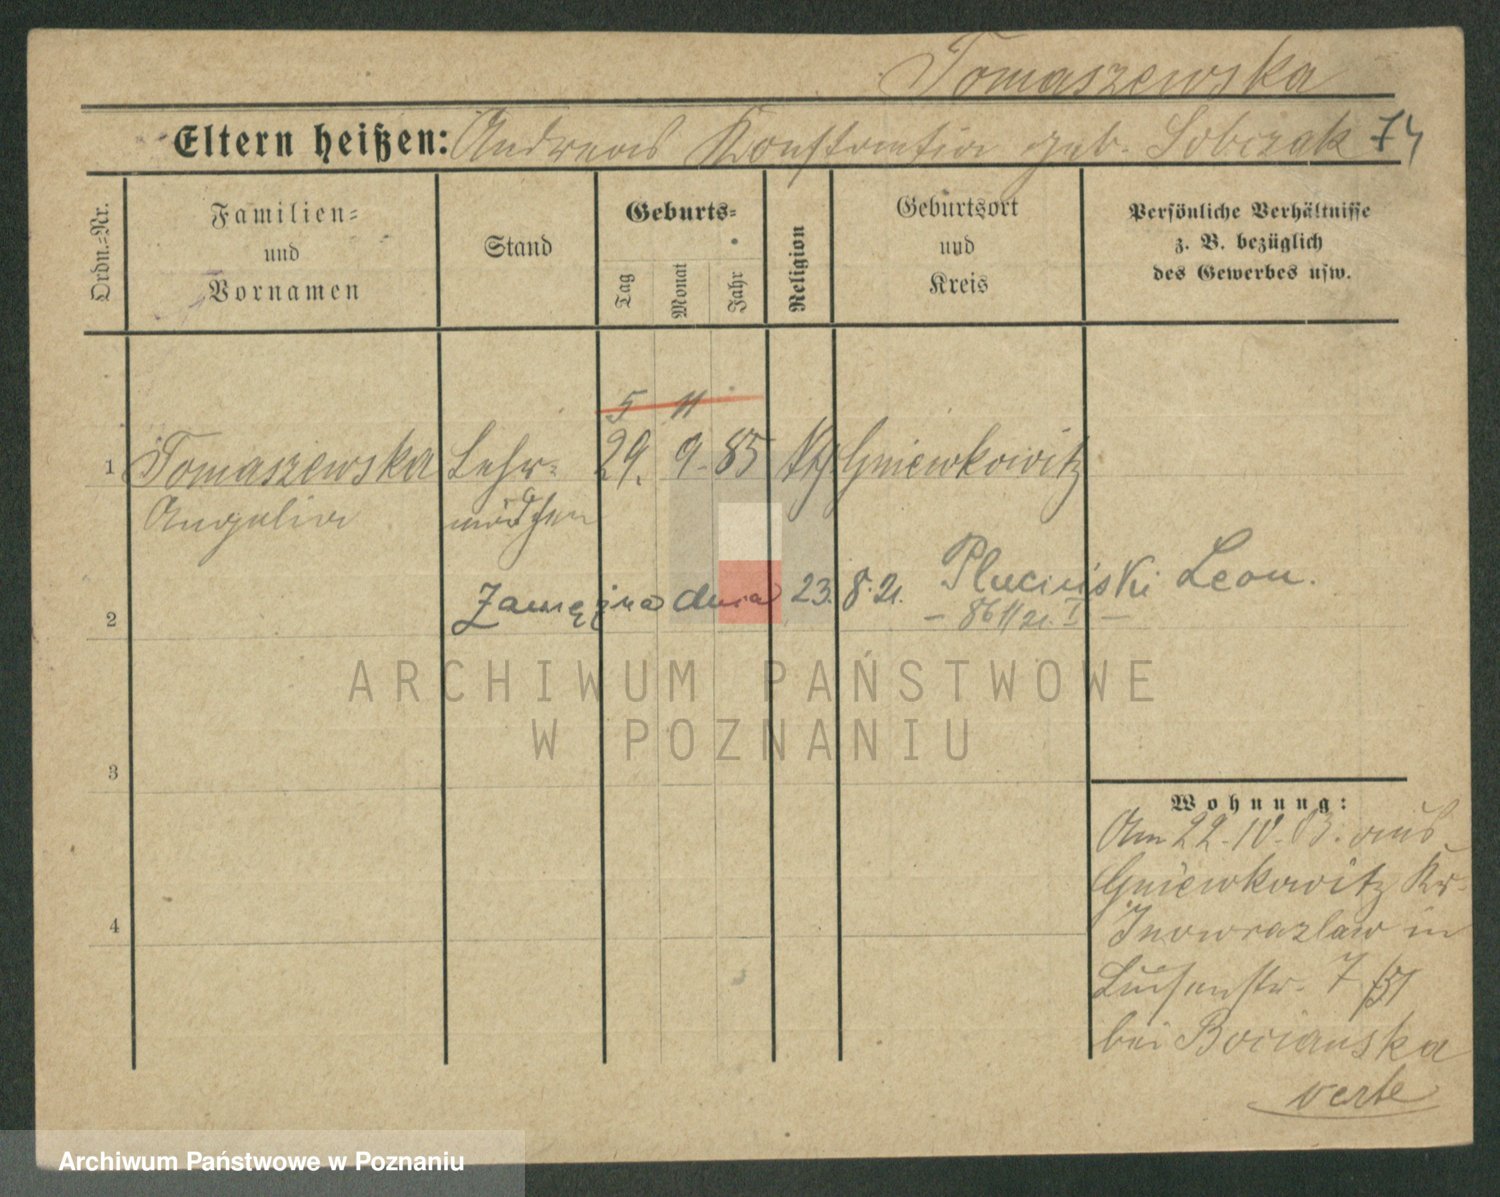 Tomaszewska
Eltern heißen: Andreas Konstantia geb. Sobczak 74
Ordn.=Nr.
Familien=
und
Vornamen
Stand
Geburts=
Tag
Monat
Jahr
Religion
Geburtsort
und
Kreis
Persönliche Verhältnisse
z. B. bezüglich
des Gewerbes usw.
5 11
1 Tomaszewska Lehr= 29. 9. 85 Gniewkowitz
Angelia mädchen
2 Zamężna dnia 23. 8. 21. Pluciński Leon.
3
Wohnung:
Am 22. IV. 03. aus
Gniewkowitz Kr.
Inowrazlaw in
4
Luisenstr. 7
bei Bocianska
verte
ARCHIWUM PAŃSTWOWE
W POZNANIU
Archiwum Państwowe w Poznaniu